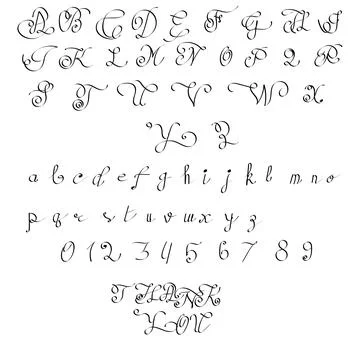 A B C D E F G H I
J K L M N O P Q R
S T U V W X
Y Z
a b c d e f g h i j k l m n o
p q r s t u v w x y z
0 1 2 3 4 5 6 7 8 9
THANK
YOU